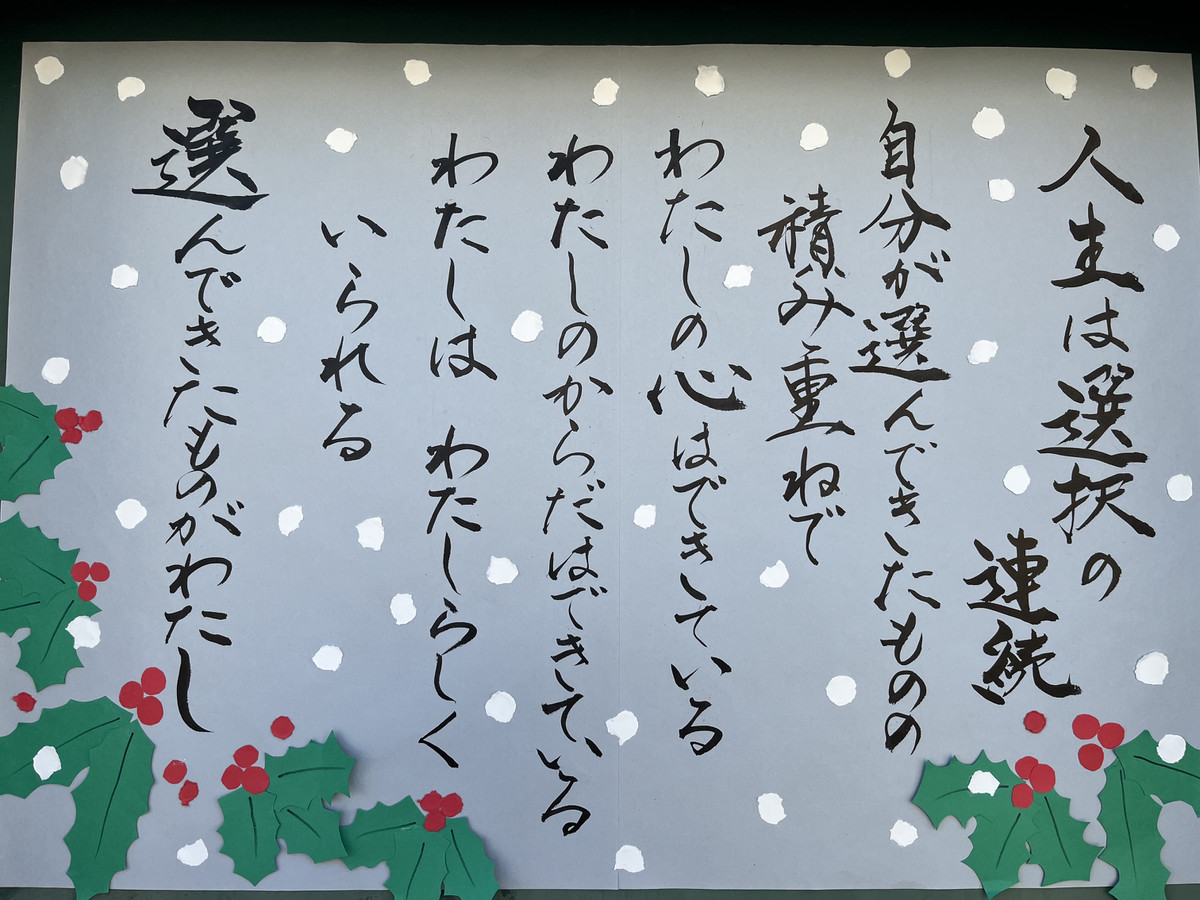 人生は選択の
連続
自分が選んできたものの
積み重ねで
わたしの心はできている
わたしのからだはできている
わたしは わたしらしく
いられる
選んできたものがわたし